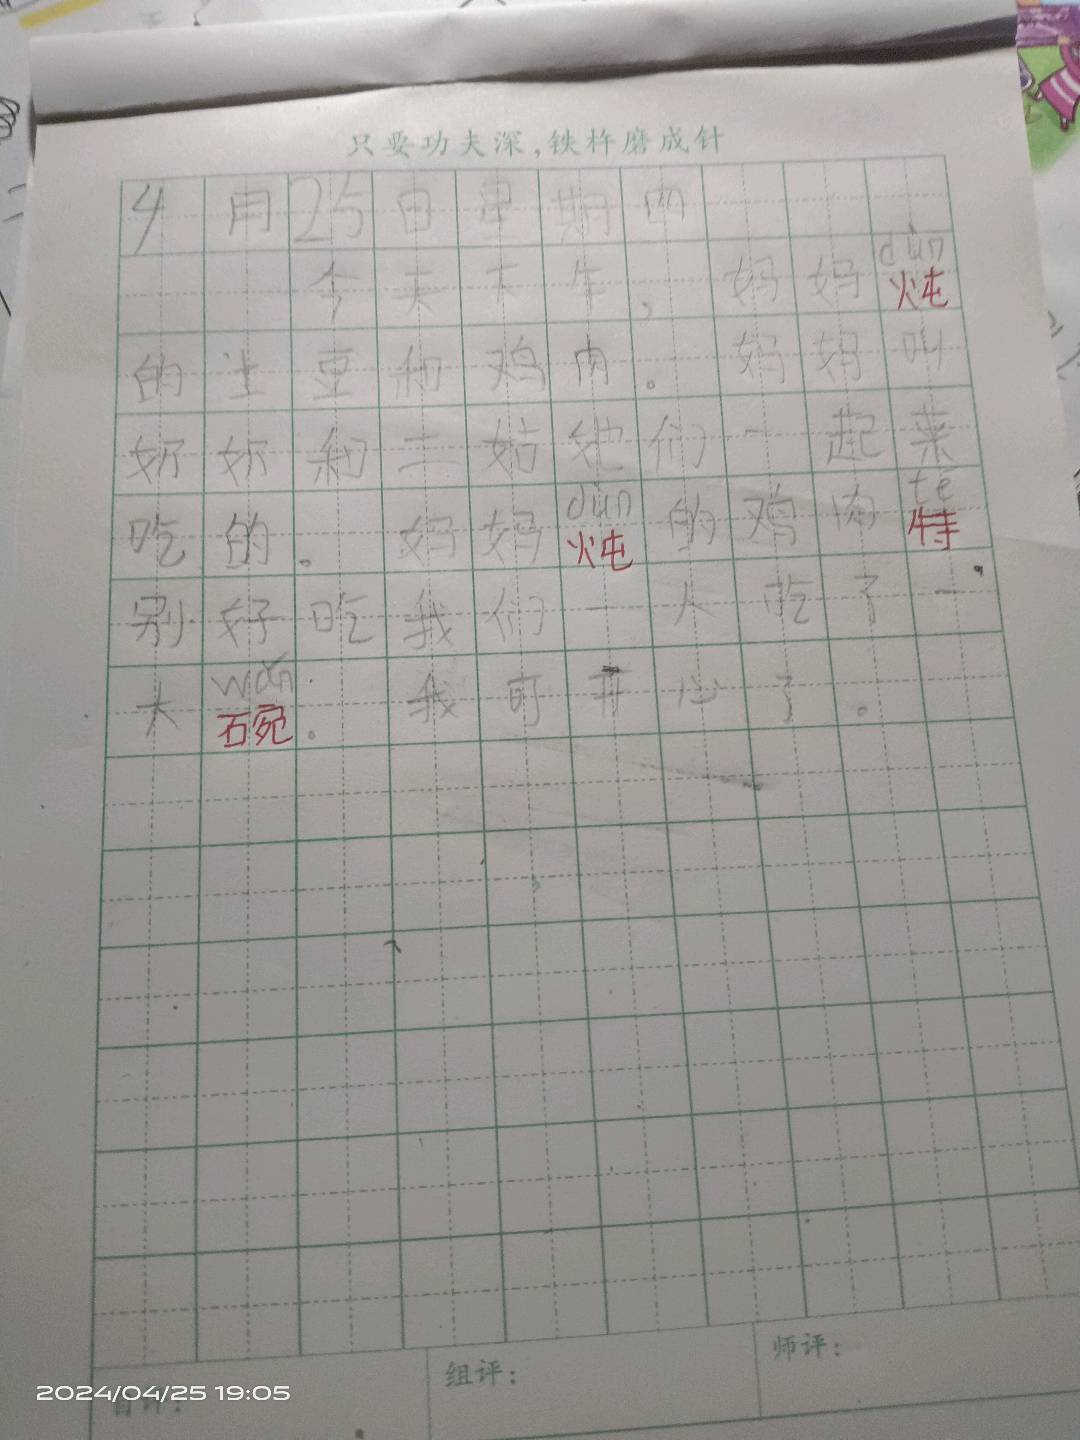 只要功夫深,铁杵磨成针
4月25日星期四
今天下午,妈妈dùn炖
的土豆和鸡肉。妈妈叫
奶奶和二姑她们一起来
吃的。妈妈dùn炖的鸡肉tè特
别好吃我们一人吃了一
大wǎn碗。我可开心了。
自评:
组评:
师评:
2024/04/25 19:05